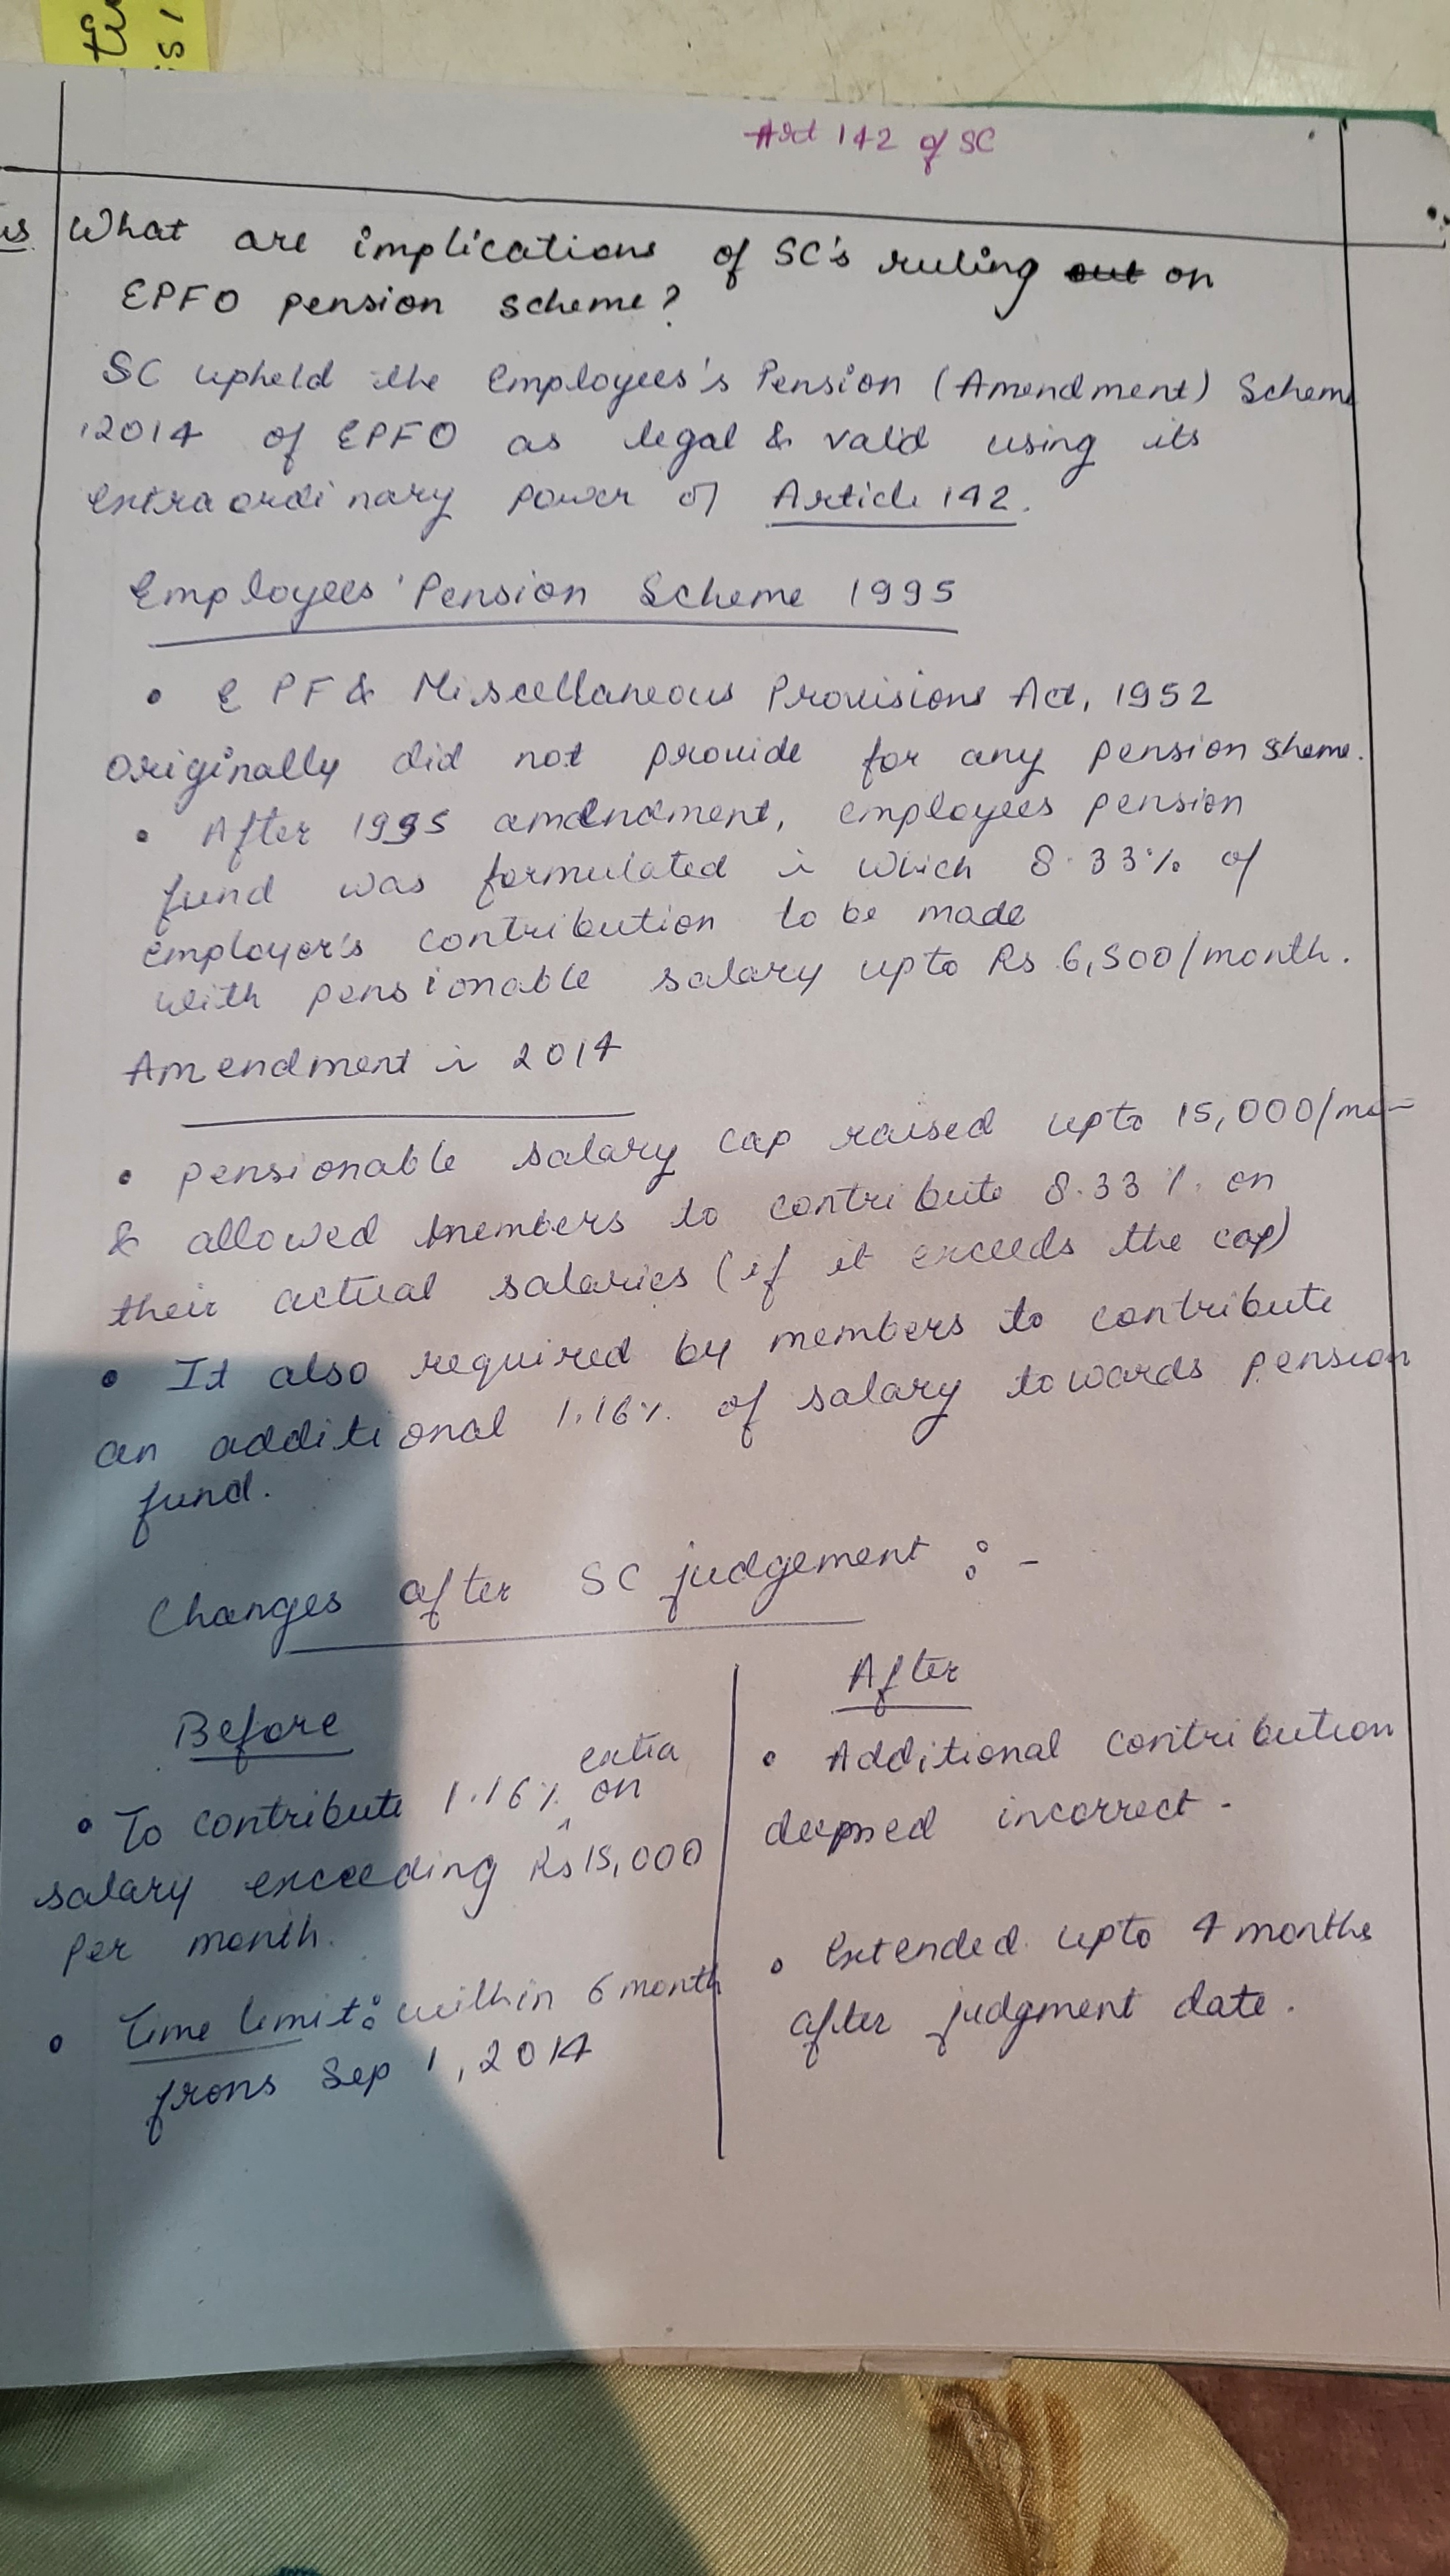 Art 142 of SC
What are implications of SC's ruling out on
EPFO pension scheme?
SC upheld the Employees's Pension (Amendment) Scheme
2014 of EPFO as legal & valid using its
extraordinary power of Article 142.
Employees' Pension Scheme 1995
• EPF & Miscellaneous Provisions Act, 1952
originally did not provide for any pension sheme.
• After 1995 amendment, employees pension
fund was formulated in which 8.33% of
employer's contribution to be made
with pensionable salary upto Rs 6,500/month.
Amendment in 2014
• Pensionable salary cap raised upto 15,000/mo
& allowed members to contribute 8.33% on
their actual salaries (if it exceeds the cap)
• It also required by members to contribute
an additional 1.16% of salary towards pension
fund.
Changes after SC judgement :-
Before
• To contribute 1.16% extra on
salary exceeding Rs 15,000
per month.
• Time limit: within 6 month
from Sep 1, 2014
After
• Additional contribution
deemed incorrect.
• Extended upto 4 months
after judgment date.